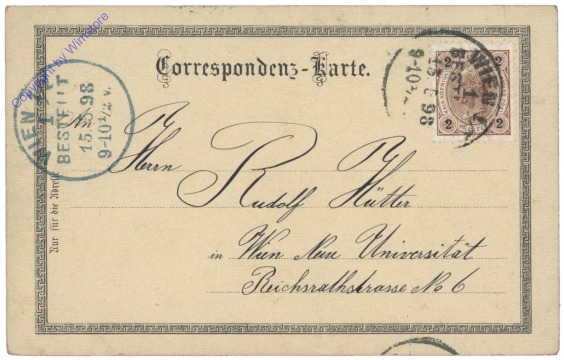 Copyright by Wimstore
Correspondenz-Karte.
WIEN
1
BESTELLT
15.6.98
9-10½ V.
2 2
2 2
WIEN
1
BEST
98
9-10½
An
Herrn
Rudolf Hütter
in Wien Neue Universität
Reichsrathstrasse No 6
Nur für die Adresse